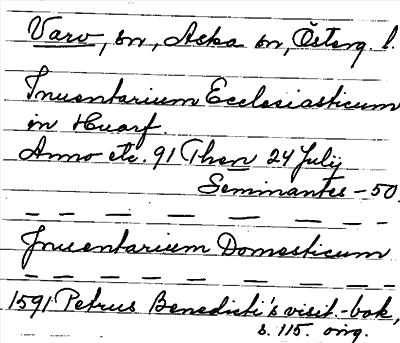 Varv, sn, Aska sn, Österg. l.
Inuentarium Ecclesiasticum
in Huarf.
Anno etc. 91 Then 24 Julij
Seminantes - 50.
Inuentarium Domesticum
1591 Petrus Benedicti's visit.-bok,
s. 115. orig.